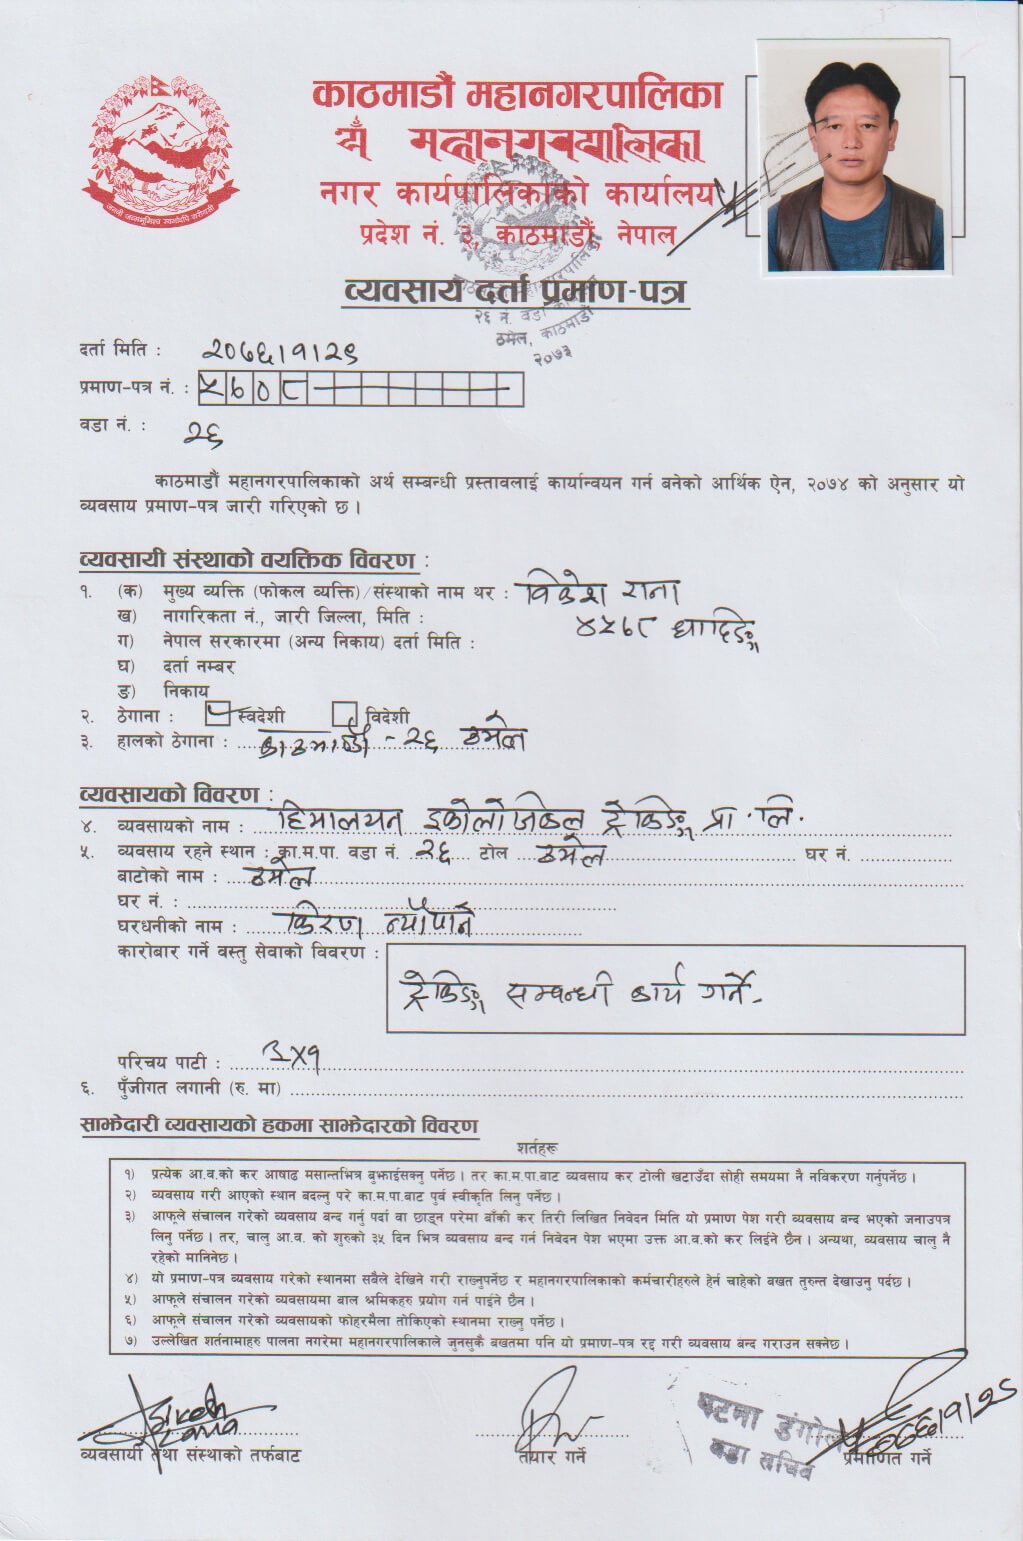 काठमाडौं महानगरपालिका
नगर कार्यपालिकाको कार्यालय
प्रदेश नं. ३, काठमाडौं, नेपाल
व्यवसाय दर्ता प्रमाण-पत्र
काठमाडौं महानगरपालिका
२६ नं. वडा कार्यालय
ठमेल, काठमाडौं
२०७३
दर्ता मिति : २०७६।१।२९
प्रमाण-पत्र नं. : ५७०८
वडा नं. : २६
काठमाडौं महानगरपालिकाको अर्थ सम्बन्धी प्रस्तावलाई कार्यान्वयन गर्न बनेको आर्थिक ऐन, २०७४ को अनुसार यो
व्यवसाय प्रमाण-पत्र जारी गरिएको छ ।
व्यवसायी संस्थाको वयक्तिक विवरण :
१. (क) मुख्य व्यक्ति (फोकल व्यक्ति)/संस्थाको नाम थर : विकेश राना
ख) नागरिकता नं., जारी जिल्ला, मिति : ४५७८ धादिङ्ग
ग) नेपाल सरकारमा (अन्य निकाय) दर्ता मिति :
घ) दर्ता नम्बर
ङ) निकाय
२. ठेगाना : स्वदेशी विदेशी
३. हालको ठेगाना : काठमाडौं - २६ ठमेल
व्यवसायको विवरण :
४. व्यवसायको नाम : हिमालयन इकोलोजिकल ट्रेकिङ्ग प्रा. लि.
५. व्यवसाय रहने स्थान : का.म.पा. वडा नं. २६ टोल ठमेल घर नं.
बाटोको नाम : ठमेल
घर नं. :
घरधनीको नाम : किरण न्यौपाने
कारोबार गर्ने वस्तु सेवाको विवरण :
ट्रेकिङ्ग सम्बन्धी कार्य गर्ने-
परिचय पाटी : ३X१
६. पुँजीगत लगानी (रु. मा)
साझेदारी व्यवसायको हकमा साझेदारको विवरण
शर्तहरू
१) प्रत्येक आ.व.को कर आषाढ मसान्तभित्र बुझाईसक्नु पर्नेछ । तर का.म.पा.बाट व्यवसाय कर टोली खटाउँदा सोही समयमा नै नविकरण गर्नुपर्नेछ ।
२) व्यवसाय गरी आएको स्थान बदल्नु परे का.म.पा.बाट पुर्व स्वीकृति लिनु पर्नेछ ।
३) आफूले संचालन गरेको व्यवसाय बन्द गर्नु पर्दा वा छाड्न परेमा बाँकी कर तिरी लिखित निवेदन मिति यो प्रमाण पेश गरी व्यवसाय बन्द भएको जनाउपत्र
लिनु पर्नेछ । तर, चालु आ.व. को शुरुको ३५ दिन भित्र व्यवसाय बन्द गर्न निवेदन पेश भएमा उक्त आ.व.को कर लिईने छैन । अन्यथा, व्यवसाय चालु नै
रहेको मानिनेछ ।
४) यो प्रमाण-पत्र व्यवसाय गरेको स्थानमा सबैले देखिने गरी राख्नुपर्नेछ र महानगरपालिकाको कर्मचारीहरुले हेर्न चाहेको बखत तुरुन्त देखाउनु पर्दछ ।
५) आफूले संचालन गरेको व्यवसायमा बाल श्रमिकहरु प्रयोग गर्न पाईने छैन ।
६) आफूले संचालन गरेको व्यवसायको फोहरमैला तोकिएको स्थानमा राख्नु पर्नेछ ।
७) उल्लेखित शर्तनामाहरु पालना नगरेमा महानगरपालिकाले जुनसुकै बखतमा पनि यो प्रमाण-पत्र रद्द गरी व्यवसाय बन्द गराउन सक्नेछ ।
Bikesh Rana
व्यवसायी तथा संस्थाको तर्फबाट
तयार गर्ने
घटमा डंगोल
वडा सचिव
प्रमाणित गर्ने